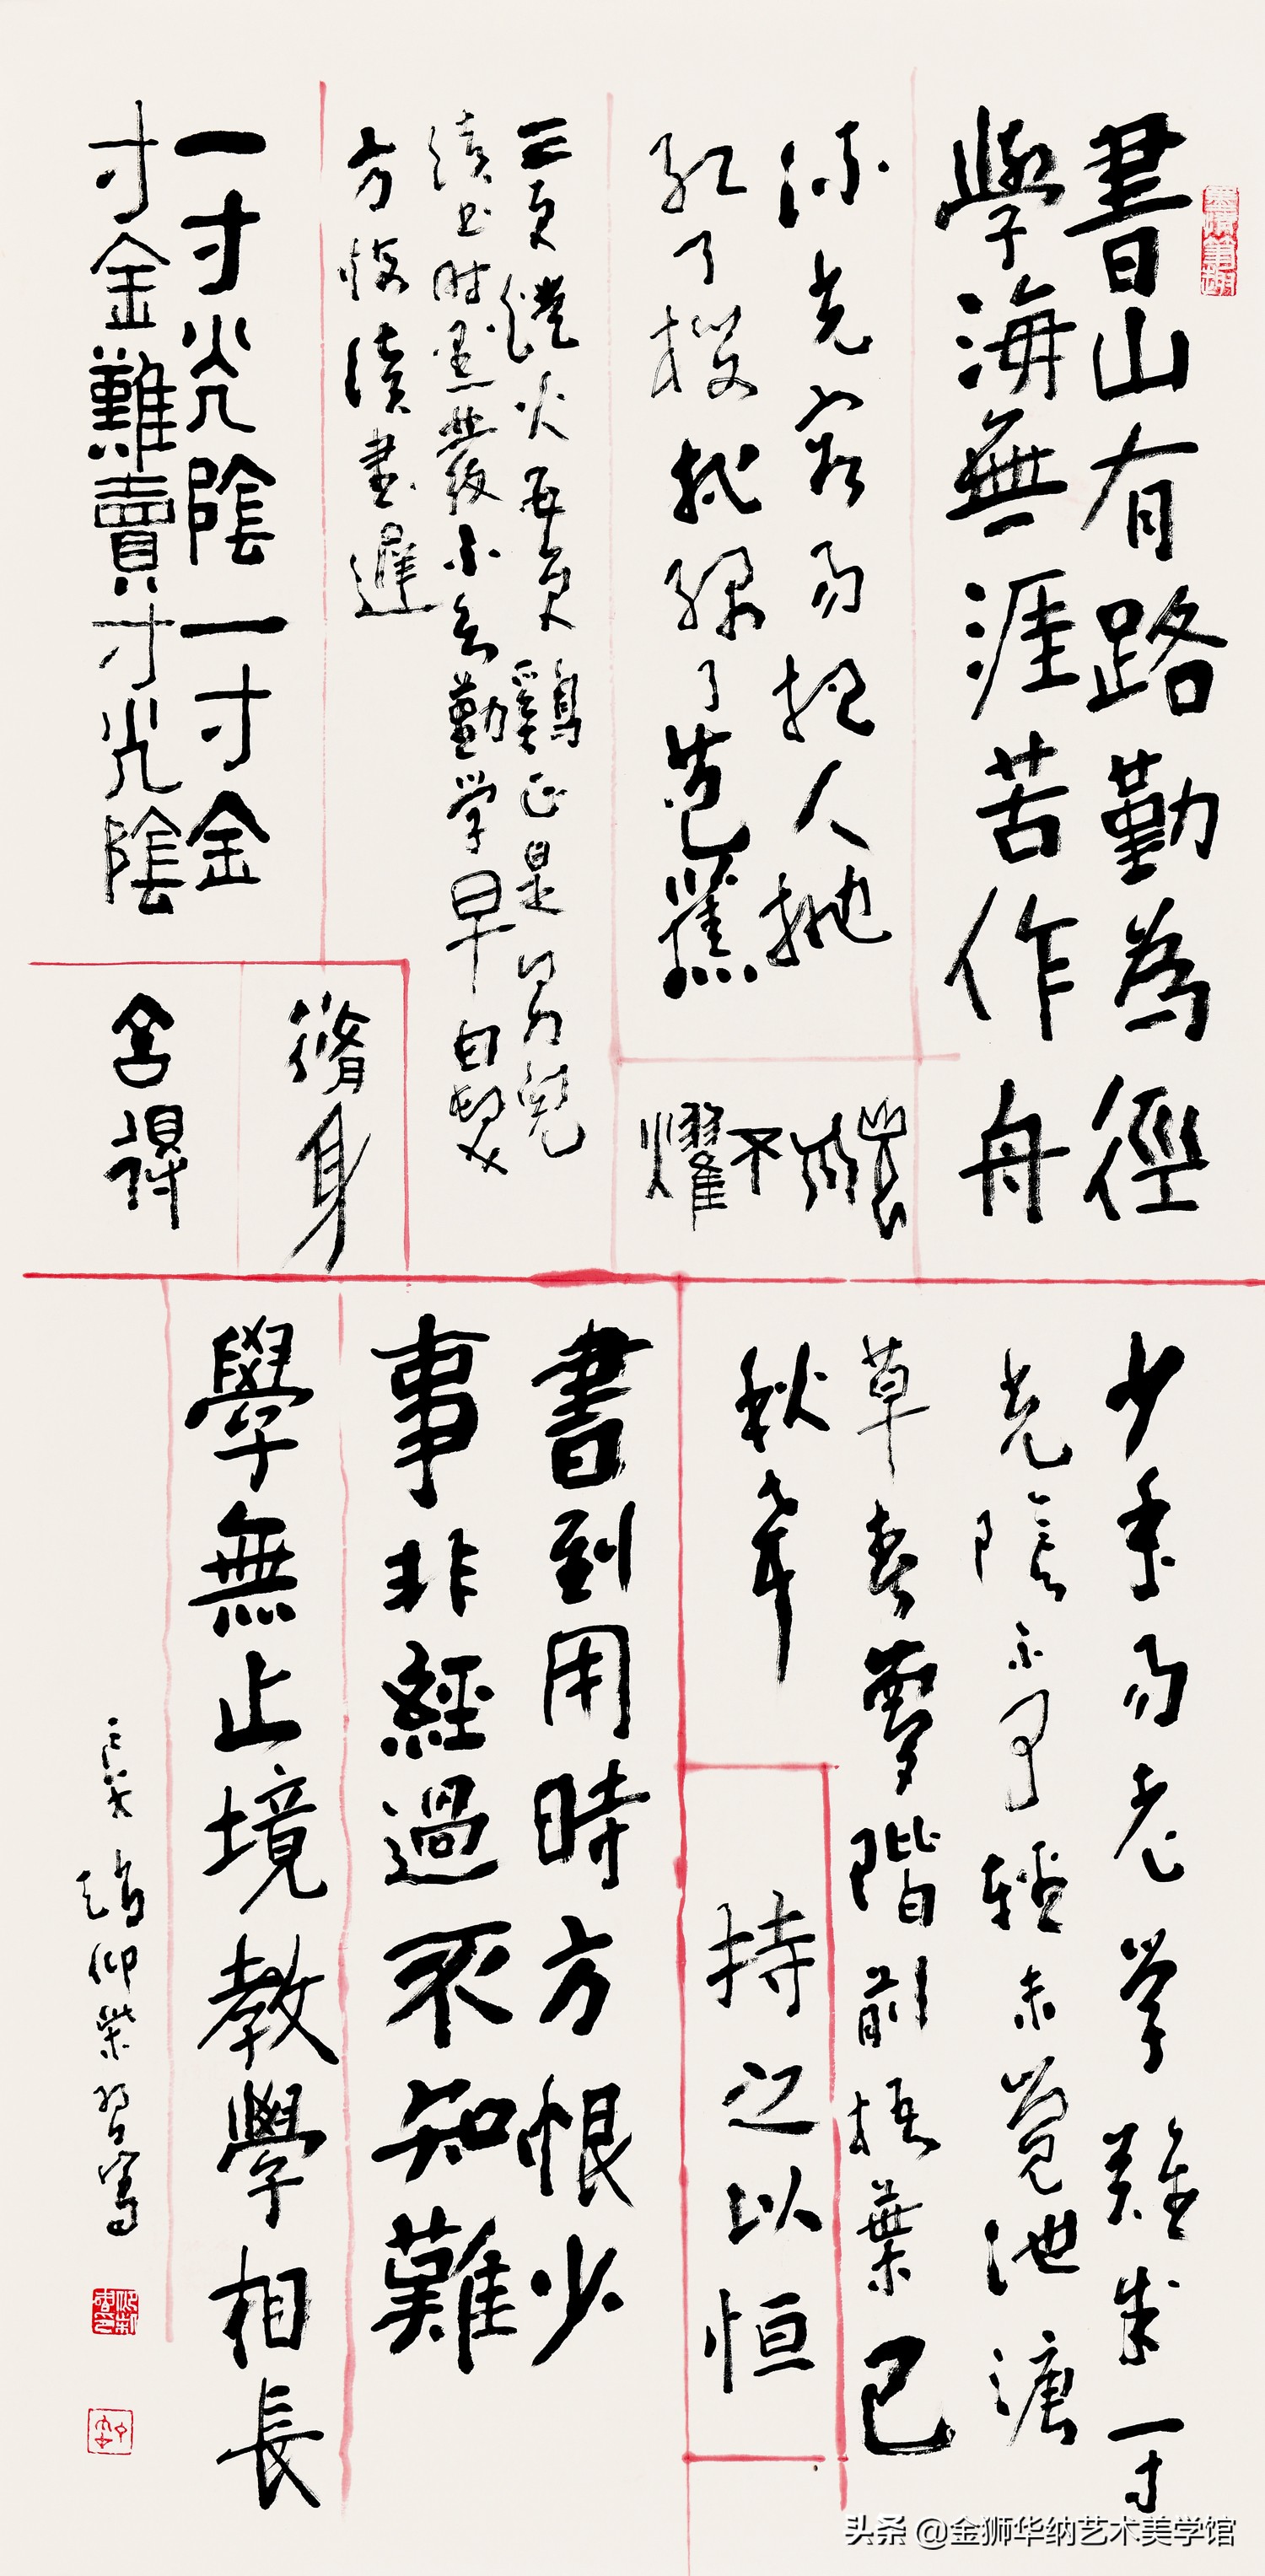 書山有路勤為徑
學海無涯苦作舟
流光容易把人抛
紅了櫻桃綠了芭蕉
不燿
三更燈火五更鷄正是男兒
讀书时黑發不知勤学早白髮
方悔讀書遲
一寸光陰一寸金
寸金難賣寸光陰
脩身
舍得
少年易老学難成一寸
光陰不可輕未覺池塘
草春夢階前梧葉已
秋聲
持之以恒
書到用時方恨少
事非經過不知難
學無止境教學相長
趙仰習寫
头条 @金狮华纳艺术美学馆